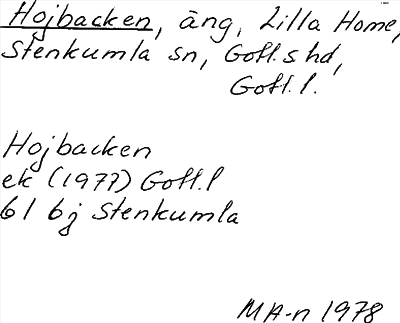 Hojbacken, äng, Lilla Home,
Stenkumla sn, Gotl. s hd,
Gotl. l.
Hojbacken
ek (1977) Gotl. l
6 I 6j Stenkumla
MA-n 1978